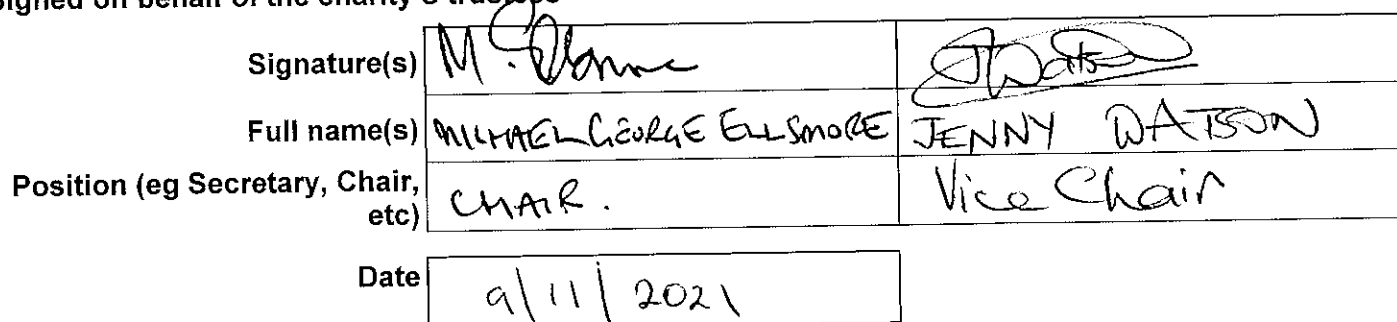 Signed on behalf of the charity's trustees
Signature(s)
Full name(s) MICHAEL GEORGE ELLSMORE JENNY WATSON
Position (eg Secretary, Chair, etc) CHAIR. Vice Chair
Date 9/11/2021